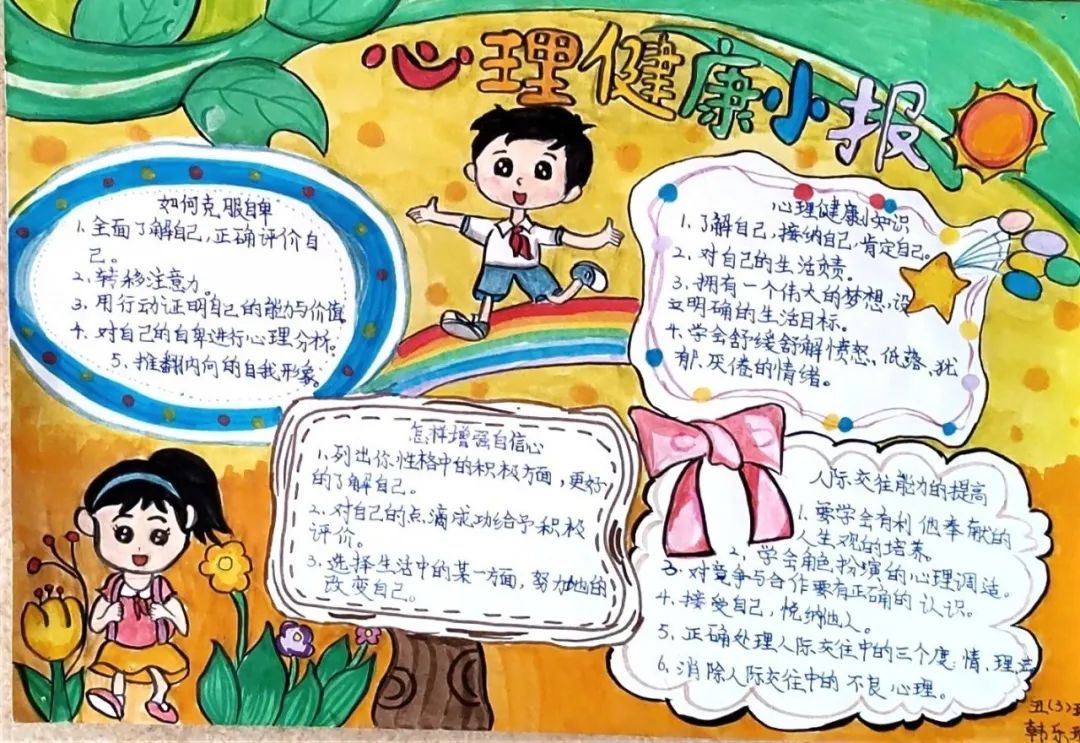 心理健康小报
如何克服自卑
1.全面了解自己,正确评价自
己。
2.转移注意力。
3.用行动证明自己的能力与价值
4.对自己的自卑进行心理分析。
5.推翻内向的自我形象。
心理健康小知识
1.了解自己,接纳自己,肯定自己。
2.对自己的生活负责。
3.拥有一个伟大的梦想,设
立明确的生活目标。
4.学会舒缓舒解愤怒、低落、犹
郁、厌倦的情绪。
怎样增强自信心
1.列出你性格中的积极方面,更好
的了解自己。
2.对自己的点滴成功给予积极
评价。
3.选择生活中的某一方面,努力地的
改变自己。
人际交往能力的提高
1.要学会有利他奉献的
人生观的培养。
2.学会角色扮演的心理调适。
3.对竞争与合作要有正确的认识。
4.接受自己,悦纳他人。
5.正确处理人际交往中的三个度:情、理
6.消除人际交往中的不良心理。
五(3)
韩乐